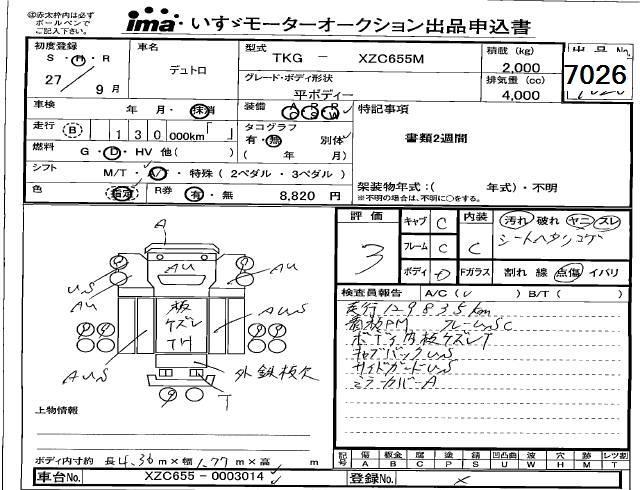 ◎赤太枠内は必ず
ボールペンで
ご記入下さい。
ima いすゞモーターオークション出品申込書
初度登録
S・H・R
27 9月
車名
デュトロ
型式
TKG － XZC655M
グレード・ボディ形状
平ボディー
積載 (kg)
2,000
排気量 (cc)
4,000
出品No.
7026
車検 年 月・抹消
装備 A/C P/S P/W
走行 B 130 000km
タコグラフ
有・無 別体
( 年 月)
燃料 G・D・HV 他( )
シフト M/T・A/T・特殊(2ペダル・3ペダル)
色 指定 R券 有・無 8,820 円
特記事項
書類2週間
架装物年式:( 年式)・不明
※不明の場合は、不明に○をする。
評価
3
キャブ C
フレーム C
ボディ D
内装
C
Fガラス
汚れ 破れ ヤニ ズレ
シートヘタリコゲ
割れ 線 点傷 イバリ
検査員報告 A/C(レ) B/T( )
走行129835km
フレームUSC
ボディ内板ケズレT
キャブバックUS
サイドガードUS
ミラーカバーA
A
US
AU
AU
AU
板
ケズレ
TM
AUS
AUS
外鉄板欠
T
上物情報
ボディ内寸約 長4.36m×幅1.77m×高 m
記号 傷 板金 腐 塗 錆 凹 凸凹曲 波 穴 跡 マット レンズ割
A B C P S U W H M T
車台No. XZC655－0003014
登録No. ×